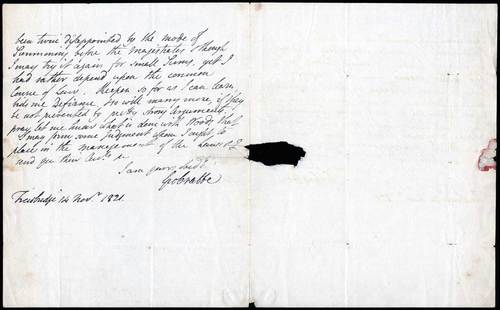 been twice disappointed by the mode of
Summoning before the Magistrates & though
I may try it again for small Sums, yet I
had rather depend upon the common
Course of Law. so far as I can learn,
bids me Defiance, so will many more, if they
be not prevented by pretty strong Arguments
pray let me know what is done with Woods that
I may form some Judgment upon I ought to
place in the management of the
send you their
I am yours
Geo Crabbe
Trowbridge 14 Novr. 1821.